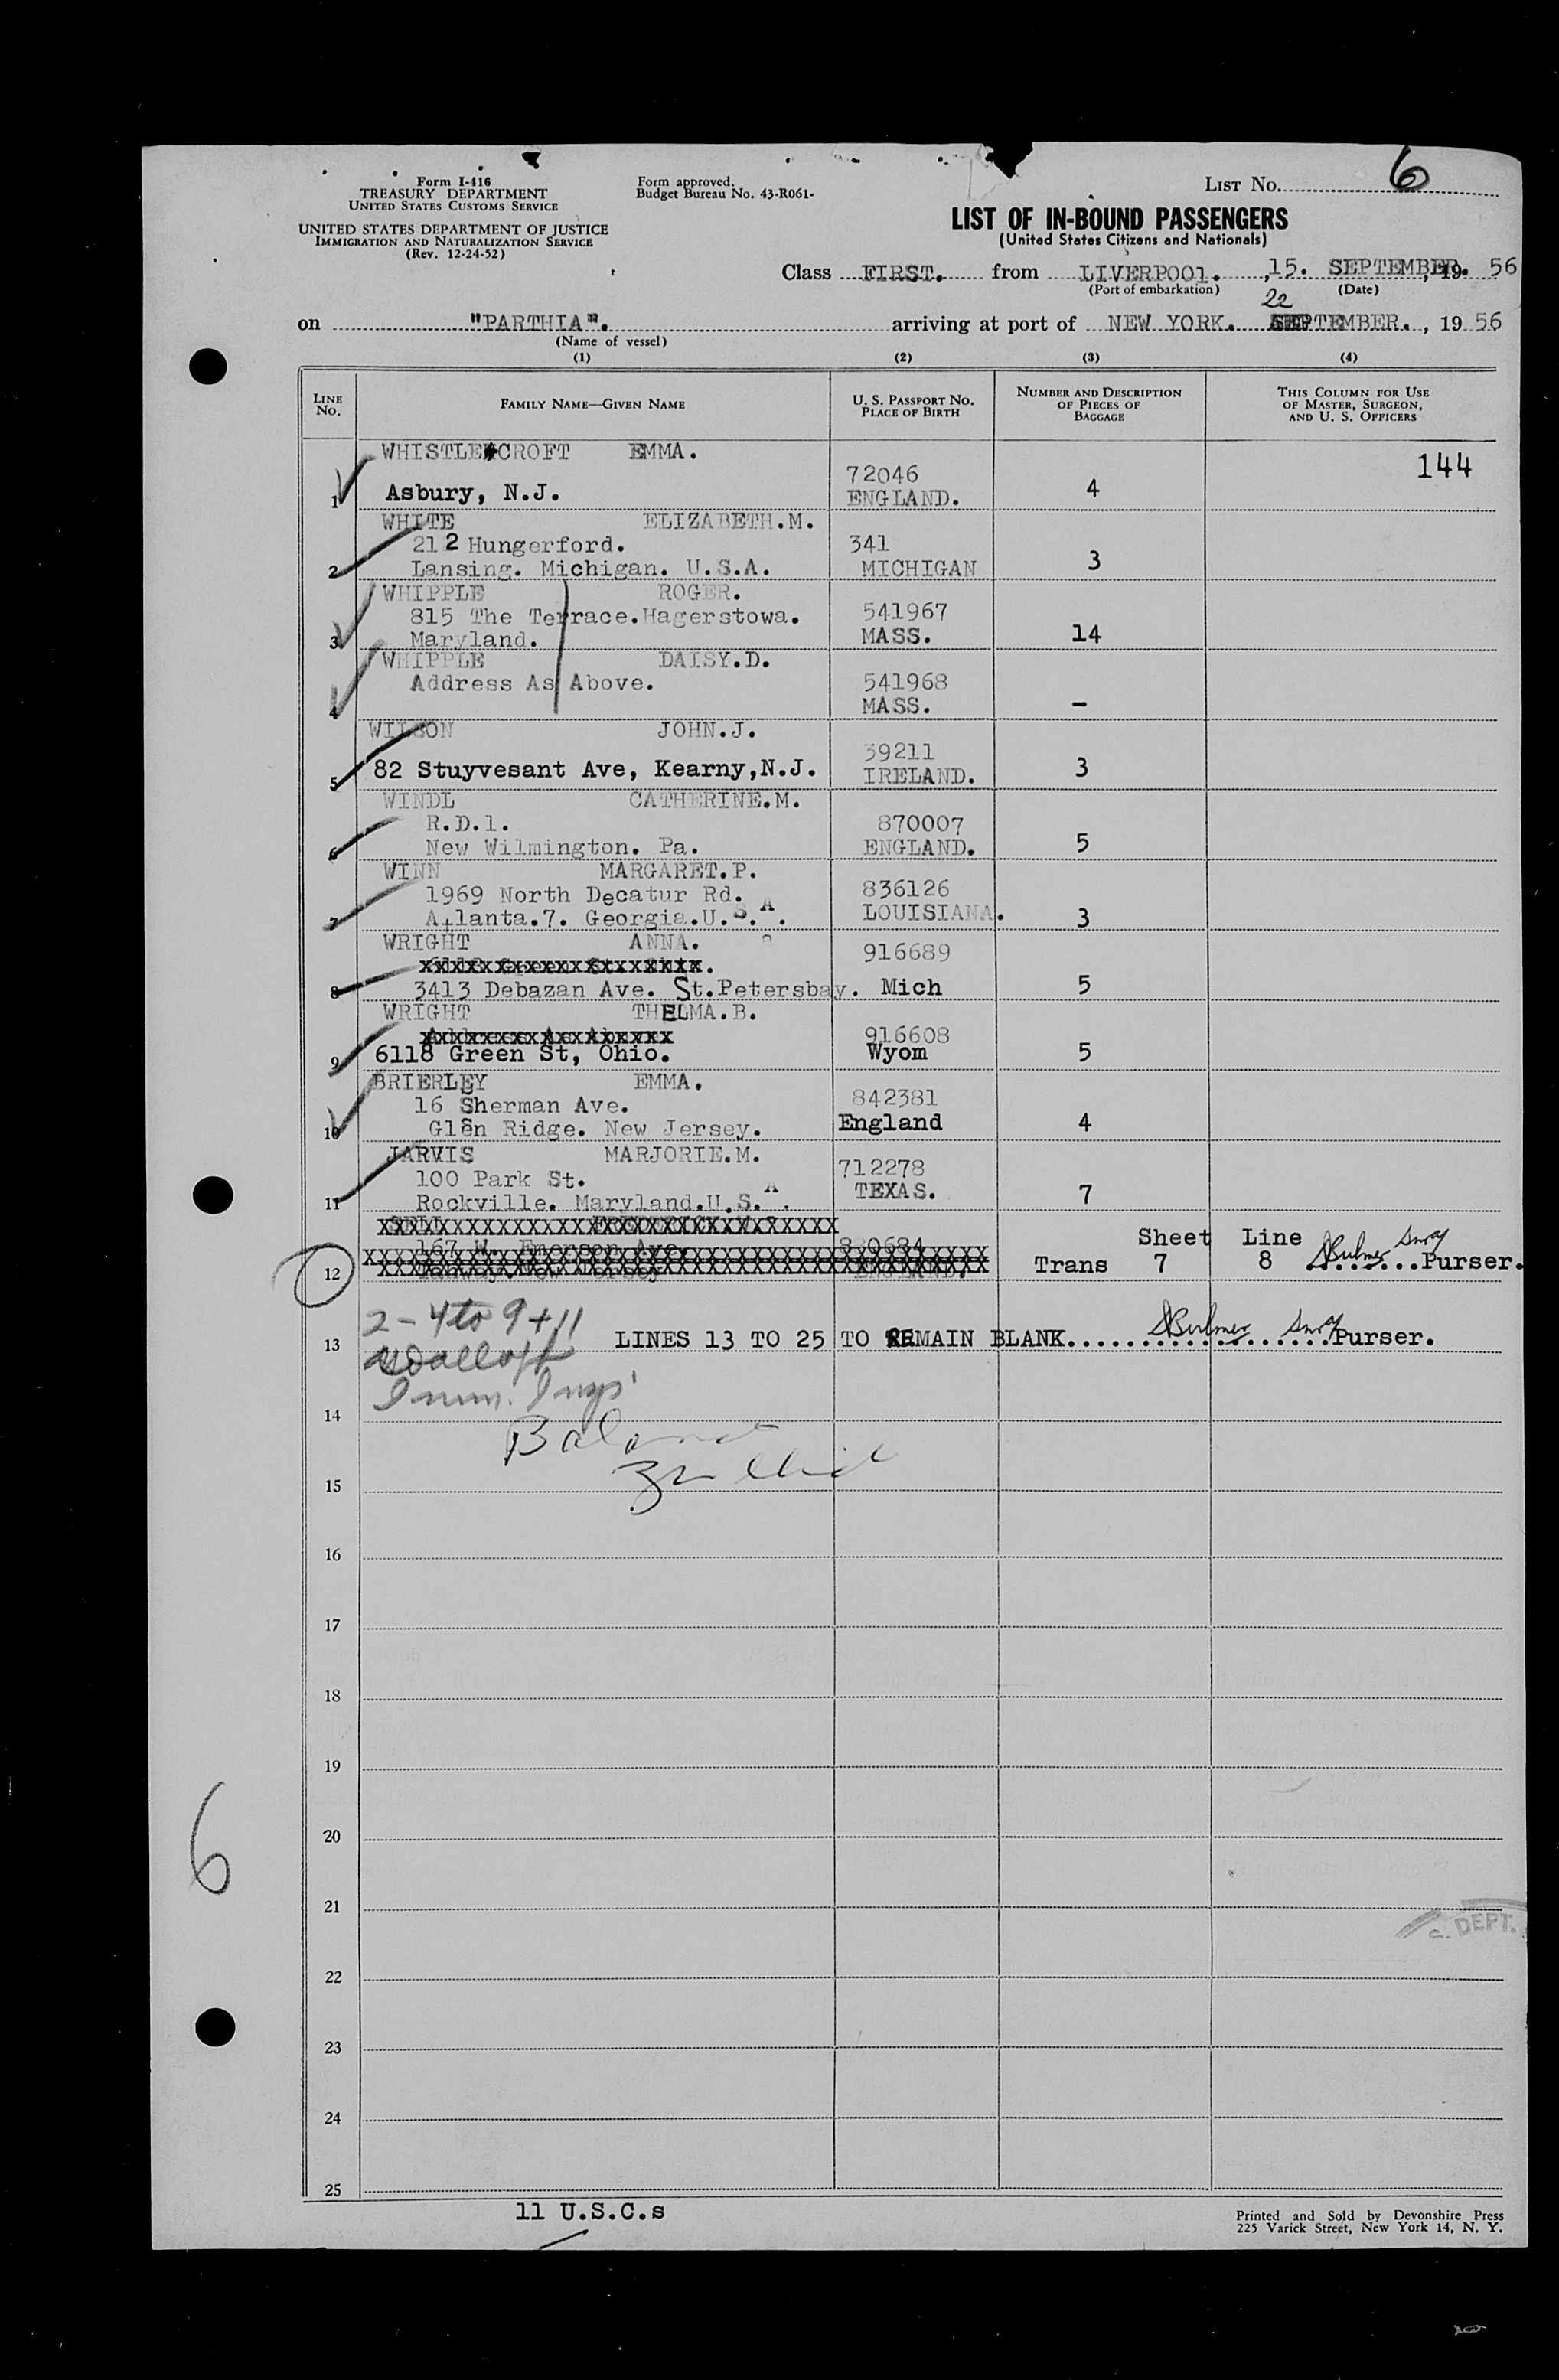 Form I-416
TREASURY DEPARTMENT
UNITED STATES CUSTOMS SERVICE
UNITED STATES DEPARTMENT OF JUSTICE
IMMIGRATION AND NATURALIZATION SERVICE
(Rev. 12-24-52)
Form approved.
Budget Bureau No. 43-R061-
LIST No. 6
LIST OF IN-BOUND PASSENGERS
(United States Citizens and Nationals)
Class FIRST. from LIVERPOOl. , 15. SEPTEMBER. , 19 56
(Port of embarkation) (Date)
22
on "PARTHIA". arriving at port of NEW YORK. SEPTEMBER. , 19 56
(Name of vessel)
(1) (2) (3) (4)
LINE No. FAMILY NAME—GIVEN NAME U. S. PASSPORT NO. PLACE OF BIRTH NUMBER AND DESCRIPTION OF PIECES OF BAGGAGE THIS COLUMN FOR USE OF MASTER, SURGEON, AND U. S. OFFICERS
WHISTLECROFT EMMA.
72046 144
1 Asbury, N.J. ENGLAND. 4
WHITE ELIZABETH.M.
212 Hungerford. 341
2 Lansing. Michigan. U.S.A. MICHIGAN 3
WHIPPLE ROGER.
815 The Terrace.Hagerstowa. 541967
3 Maryland. MASS. 14
WHIPPLE DAISY.D.
Address As Above. 541968
4 MASS. –
WILSON JOHN.J.
39211
5 82 Stuyvesant Ave, Kearny,N.J. IRELAND. 3
WINDL CATHERINE.M.
R.D.1. 870007
6 New Wilmington. Pa. ENGLAND. 5
WINN MARGARET.P.
1969 North Decatur Rd. 836126
7 Atlanta.7. Georgia.U.S.A. LOUISIANA. 3
WRIGHT ANNA. 916689
8 3413 Debazan Ave. St.Petersbay. Mich 5
WRIGHT THELMA.B.
916608
9 6118 Green St, Ohio. Wyom 5
BRIERLEY EMMA.
16 Sherman Ave. 842381
10 Glen Ridge. New Jersey. England 4
JARVIS MARJORIE.M.
100 Park St. 712278
11 Rockville. Maryland.U.S.A. TEXAS. 7
167 W. Emerson Ave. Sheet Line
12 ENGLAND. Trans 7 8 Purser.
2 – 4 to 9 + 11
13 LINES 13 TO 25 TO REMAIN BLANK. Purser.
Imm. Insp
14
15
16
17
18
19
20
6
21
DEPT.
22
23
24
25
11 U.S.C.s
Printed and Sold by Devonshire Press
225 Varick Street, New York 14, N. Y.